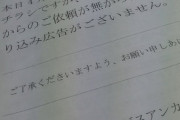 本日
チラシですが
からのご依頼が無か
り込み広告がございません。
ご了承くださいますよう、お願い申しあ
スアンカ